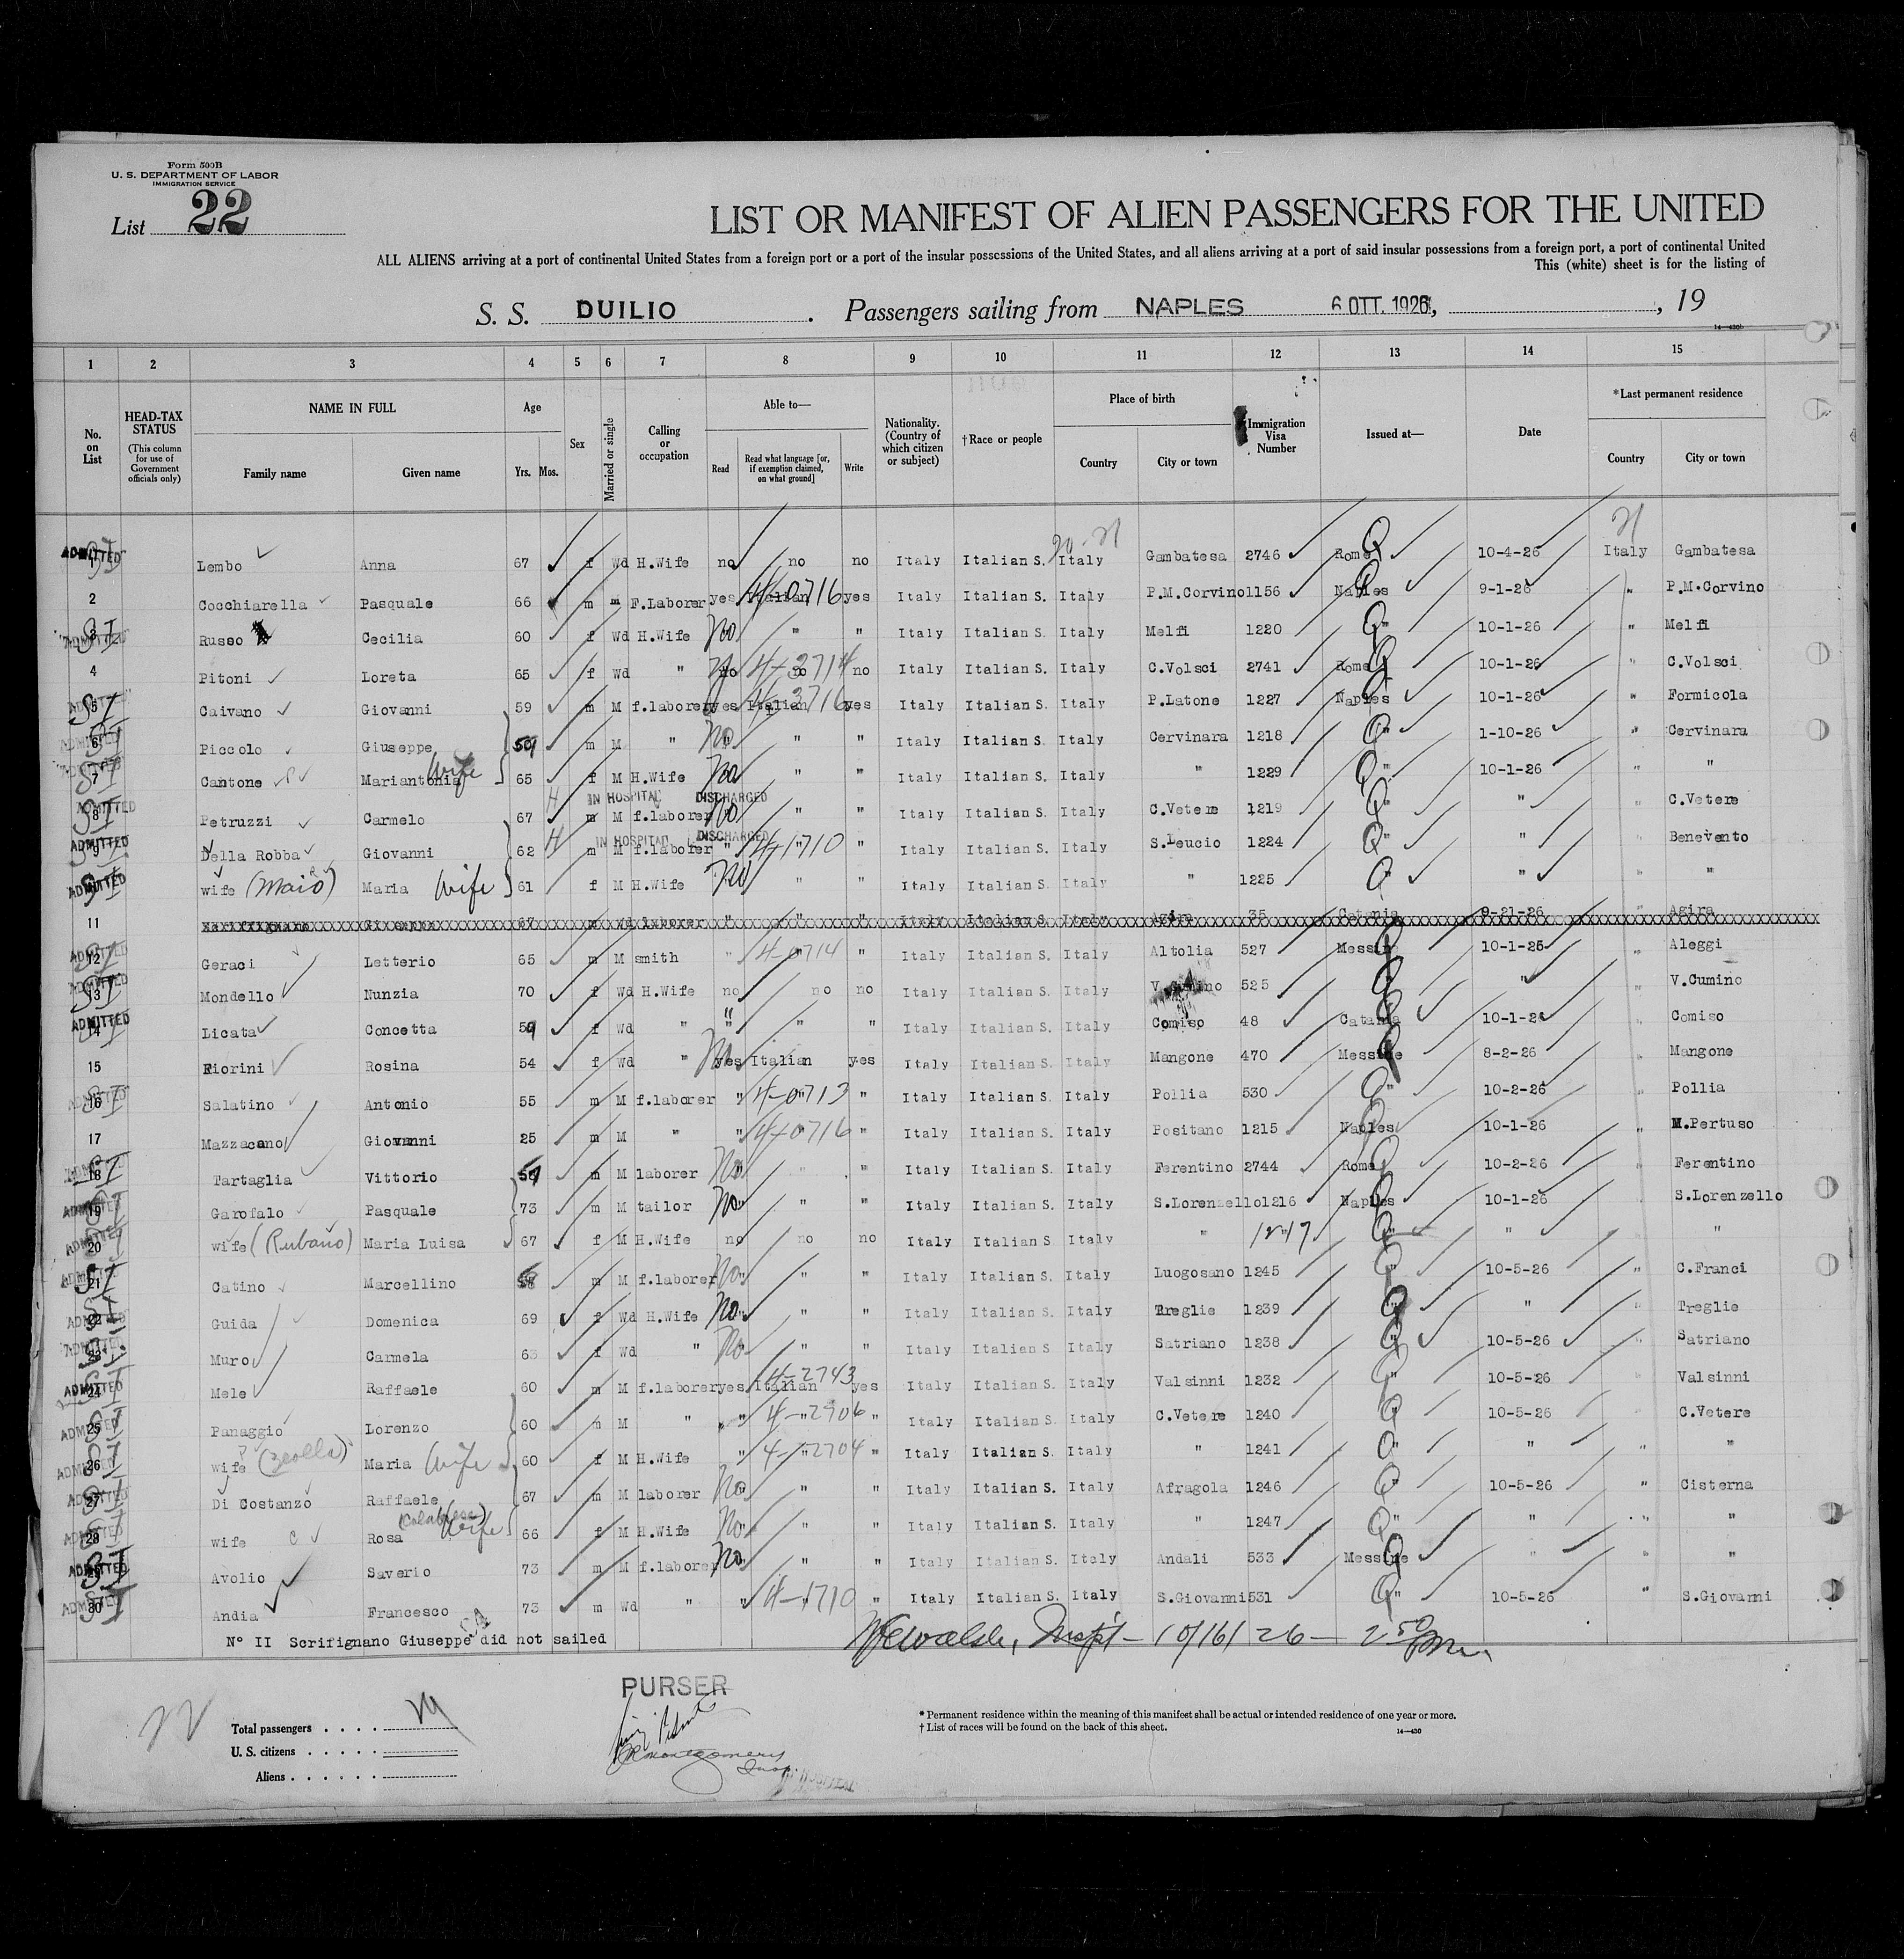 Form 500B
U. S. DEPARTMENT OF LABOR
IMMIGRATION SERVICE
List 22
LIST OR MANIFEST OF ALIEN PASSENGERS FOR THE UNITED
ALL ALIENS arriving at a port of continental United States from a foreign port or a port of the insular possessions of the United States, and all aliens arriving at a port of said insular possessions from a foreign port, a port of continental United
This (white) sheet is for the listing of
S. S. DUILIO . Passengers sailing from NAPLES 6 OTT. 1926, , 19
14—430b
1 2 3 4 5 6 7 8 9 10 11 12 13 14 15
No. on List HEAD-TAX STATUS (This column for use of Government officials only) NAME IN FULL Family name Given name Age Yrs. Mos. Sex Married or single Calling or occupation Able to— Read Read what language [or, if exemption claimed, on what ground] Write Nationality. (Country of which citizen or subject) †Race or people Place of birth Country City or town Immigration Visa Number Issued at— Date *Last permanent residence Country City or town
20-21 21
ADMITTED 1 Lembo Anna 67 f Wd H.Wife no no no Italy Italian S. Italy Gambatesa 2746 Rome 10-4-26 Italy Gambatesa
2 Cocchiarella Pasquale 66 m m F.Laborer yes Italian 4-0716 yes Italy Italian S. Italy P.M.Corvino 1156 Naples 9-1-26 " P.M.Corvino
ADMITTED SI 3 Russo Cecilia 60 f Wd H.Wife No " " Italy Italian S. Italy Melfi 1220 " 10-1-26 " Melfi
4 Pitoni Loreta 65 f Wd " no no 4-3714 no Italy Italian S. Italy C.Volsci 2741 Rome 10-1-26 " C.Volsci
ADMITTED SI 5 Caivano Giovanni 59 m M f.laborer yes Italian 4-3716 yes Italy Italian S. Italy P.Latone 1227 Naples 10-1-26 " Formicola
ADMITTED SI 6 Piccolo Giuseppe 59 m M " No " " Italy Italian S. Italy Cervinara 1218 " 1-10-26 " Cervinara
ADMITTED SI 7 Cantone Mariantonia Wife 65 f M H.Wife No " " Italy Italian S. Italy " 1229 " 10-1-26 " "
H IN HOSPITAL DISCHARGED
ADMITTED SI 8 Petruzzi Carmelo 67 m M f.laborer No " " Italy Italian S. Italy C.Vetere 1219 " " " C.Vetere
H IN HOSPITAL DISCHARGED
ADMITTED SI 9 Della Robba Giovanni 62 m M f.laborer " " 4-1710 " Italy Italian S. Italy S.Leucio 1224 " " " Benevento
ADMITTED SI wife (Maio) Maria Wife 61 f M H.Wife No " " Italy Italian S. Italy " 1225 " " "
11 67 m Wd laborer " " " Italy Italian S. Italy Agira 35 Catania 9-21-26 " Agira
ADMITTED SI 12 Geraci Letterio 65 m M smith " 4-0714 " Italy Italian S. Italy Altolia 527 Messin 10-1-26 " Aleggi
ADMITTED SI 13 Mondello Nunzia 70 f Wd H.Wife no no no Italy Italian S. Italy 525 " " V.Cumino
ADMITTED SI 14 Licata Concetta 59 f Wd " " " " Italy Italian S. Italy Comiso 48 Catania 10-1-26 " Comiso
15 Fiorini Rosina 54 f Wd " No yes Italian yes Italy Italian S. Italy Mangone 470 Messine 8-2-26 " Mangone
ADMITTED SI 16 Salatino Antonio 55 m M f.laborer " 4-0713 " Italy Italian S. Italy Pollia 530 " 10-2-26 " Pollia
17 Mazzacano Giovanni 25 m M " " 4-0716 " Italy Italian S. Italy Positano 1215 Naples 10-1-26 " M.Pertuso
ADMITTED SI 18 Tartaglia Vittorio m M laborer No " " Italy Italian S. Italy Ferentino 2744 Rome 10-2-26 " Ferentino
ADMITTED SI 19 Garofalo Pasquale 73 m M tailor No " " Italy Italian S. Italy S.Lorenzello 1216 Naples 10-1-26 S.Lorenzello
ADMITTED SI 20 wife (Rubano) Maria Luisa 67 f M H.Wife no no no Italy Italian S Italy " " " "
ADMITTED SI 21 Catino Marcellino m M f.laborer No " " Italy Italian S. Italy Luogosano 1245 " 10-5-26 " C.Franci
ADMITTED SI 22 Guida Domenica 69 f Wd H.Wife No " " Italy Italian S. Italy Treglie 1239 " " " Treglie
ADMITTED SI 23 Muro Carmela 63 f Wd " No " " Italy Italian S. Italy Satriano 1238 " 10-5-26 " Satriano
ADMITTED SI 24 Mele Raffaele 60 m M f.laborer yes Italian 4-2743 yes Italy Italian S. Italy Valsinni 1232 " 10-5-26 " Valsinni
ADMITTED SI 25 Panaggio Lorenzo 60 m M " " 4-2906 " Italy Italian S. Italy C.Vetere 1240 " 10-5-26 " C.Vetere
ADMITTED SI 26 wife (Zeolla) Maria Wife 60 f M H.Wife " 4-2704 " Italy Italian S. Italy " 1241 " " " "
ADMITTED SI 27 Di Costanzo Raffaele 67 m M laborer No " " Italy Italian S. Italy Afragola 1246 " 10-5-26 " Cisterna
ADMITTED SI 28 wife Rosa (Calabrese) Wife 66 f M H.Wife No " " Italy Italian S. Italy " 1247 " " " "
ADMITTED SI 29 Avolio Saverio 73 m M f.laborer No " " Italy Italian S. Italy Andali 533 Messine " " "
ADMITTED SI 30 Andia Francesco 73 m Wd " " 4-1710 " Italy Italian S. Italy S.Giovanni 531 " 10-5-26 " S.Giovanni
N° II Scrifignano Giuseppe did not sailed
Insp't - 10/16/26 - 2 50 pm
PURSER
Total passengers . . . .
U. S. citizens . . . . .
Aliens . . . . . .
Montgomery
Insp.
IN HOSPITAL
* Permanent residence within the meaning of this manifest shall be actual or intended residence of one year or more.
† List of races will be found on the back of this sheet.
14—430